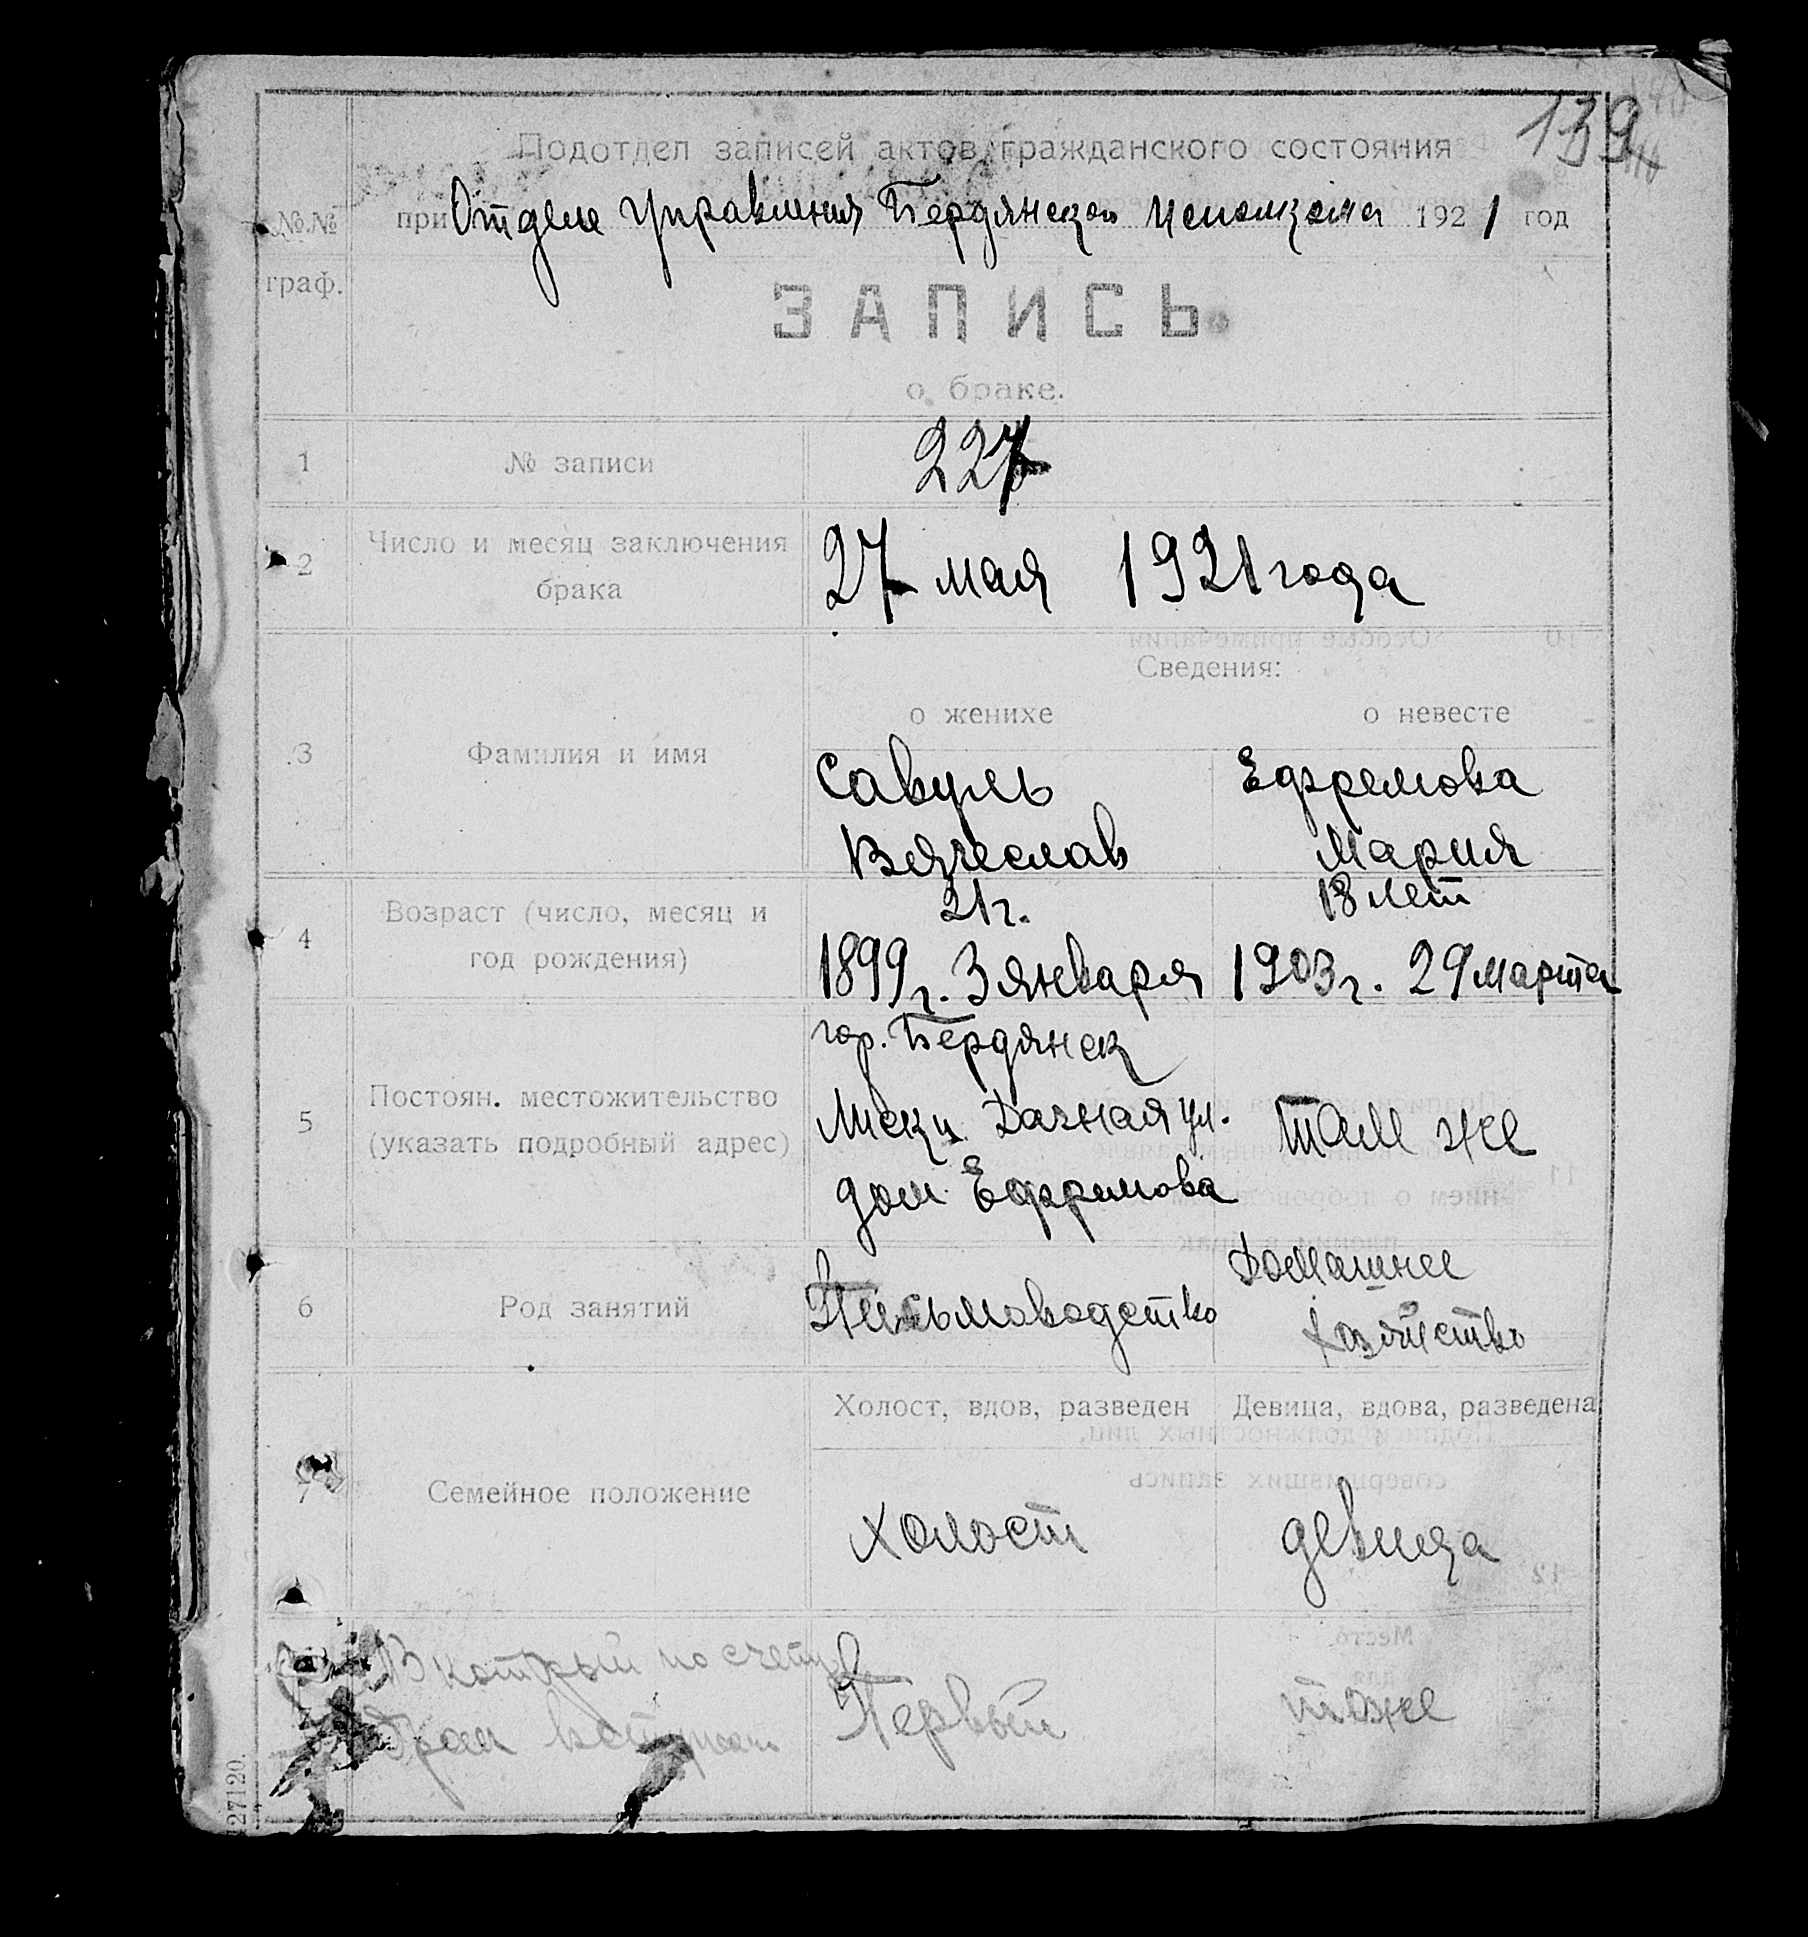 139
Подотдел записей актов гражданского состояния
№№ при Отделе Управления Бердянскаго Исполкома 1921 год
граф.
ЗАПИСЬ
о браке.
1 № записи 227
2 Число и месяц заключения
брака
27 мая 1921 года
Сведения:
о женихе о невесте
3 Фамилия и имя
Савуль Ефремова
Вячеслав Мария
4 Возраст (число, месяц и
год рождения)
21 г. 18 лет
1899 г. 3 января 1903 г. 29 марта
5 Постоян. местожительство
(указать подробный адрес)
гор. Бердянск
Дачная ул. Там же
дом Ефремова
6 Род занятий
Письмоводство Домашнее
хозяйство
Холост, вдов, разведен Девица, вдова, разведена
7 Семейное положение
холост девица
В который по счету
брак вступает
Первый тоже
127120.